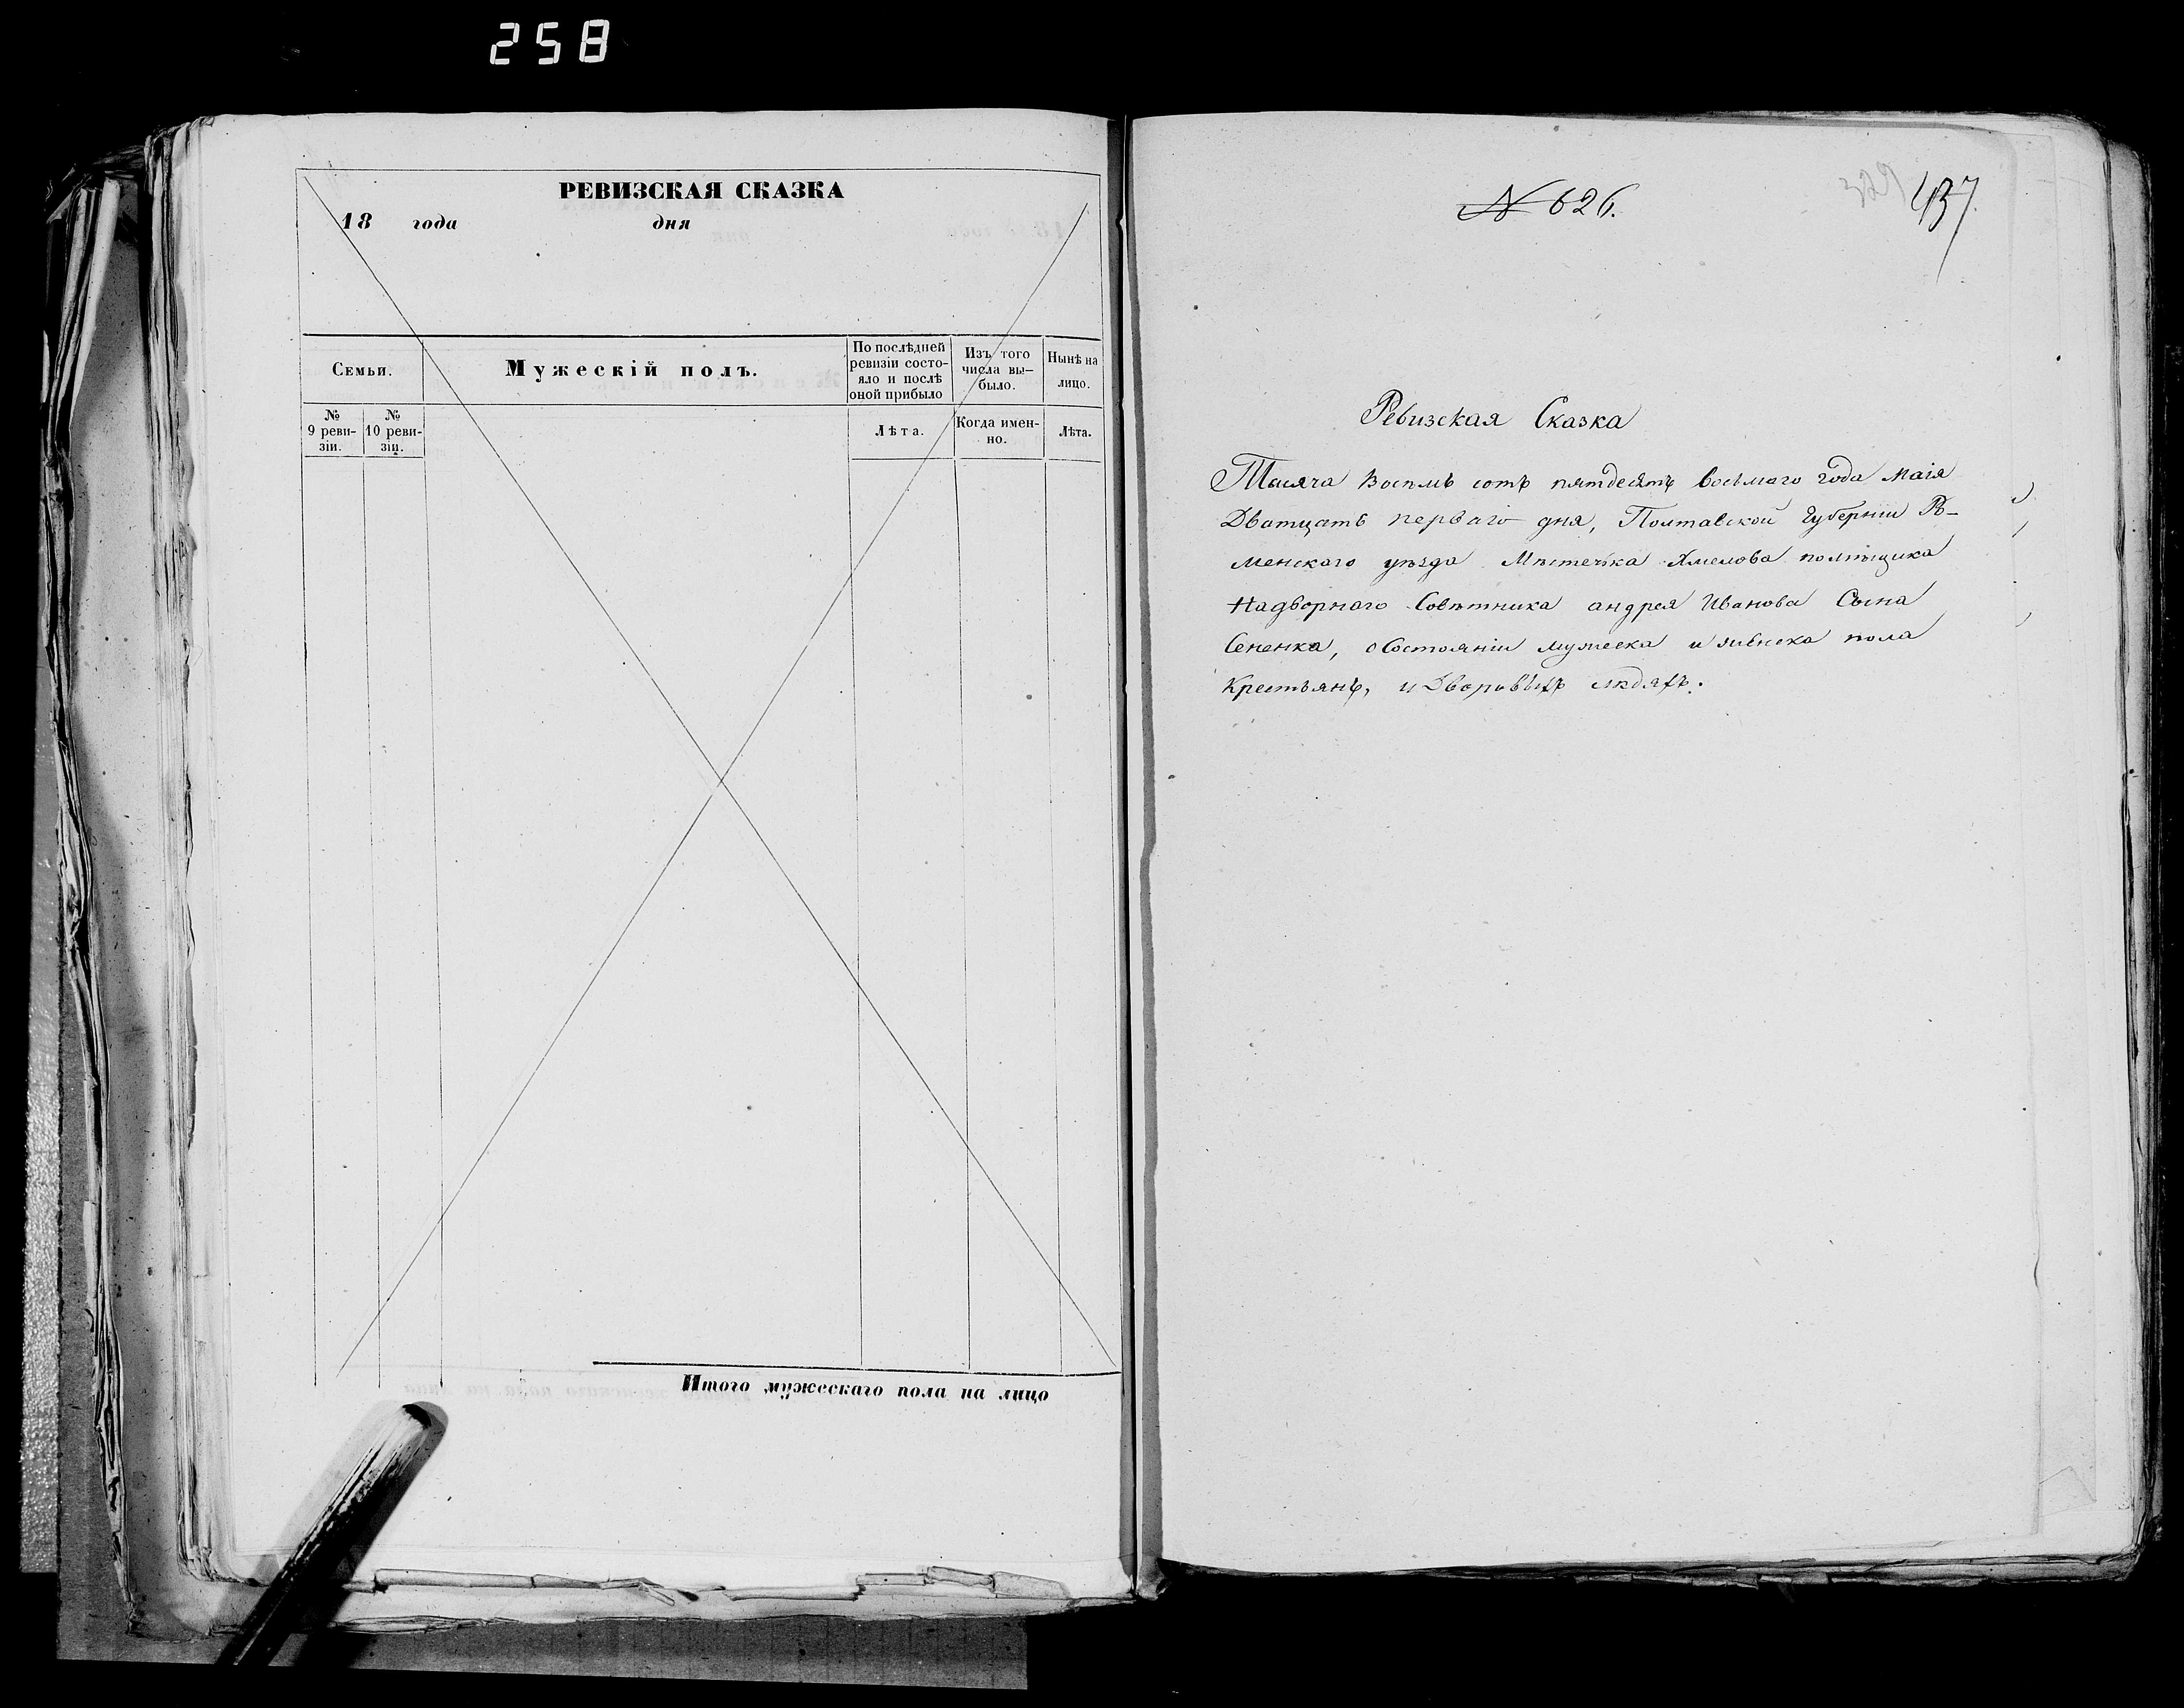 258
РЕВИЗСКАЯ СКАЗКА
18 года дня
Семьи.
Мужескій полъ.
По послѣдней
ревизіи состо-
яло и послѣ
оной прибыло
Изъ того
числа вы-
было.
Нынѣ на
лицо.
№
9 реви-
зіи.
№
10 реви-
зіи.
Лѣта.
Когда имен-
но.
Лѣта.
Итого мужескаго пола на лицо
№ 626.
329
437
Ревизская Сказка
Тысяча Восемь сотъ пятдесятъ восьмаго года Маія
Дватцать перваго дня, Полтавской Губерніи Ро-
менскаго уѣзда Мѣстечка Хмелова помѣщика
Надворнаго Совѣтника андрея Иванова Сына
Сененка, о Состояніи мужеска и женска пола
Крестьянъ, и Дворовыхъ людяхъ.